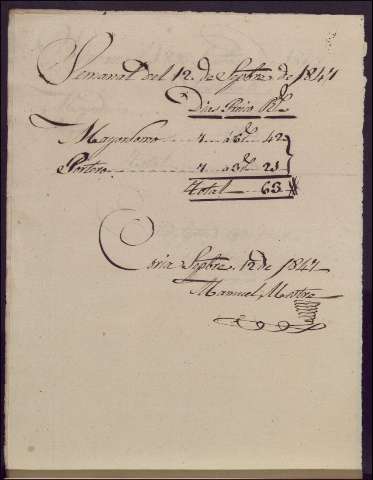 Semanal del 12 de Sepbre. de 1847
Dias Precio Rs.
Mayordomo 7 á 6 rs. 42
Portero 7 a 3 rs. 21
Total 63
Coria Sepbre. 12 de 1847
Manuel